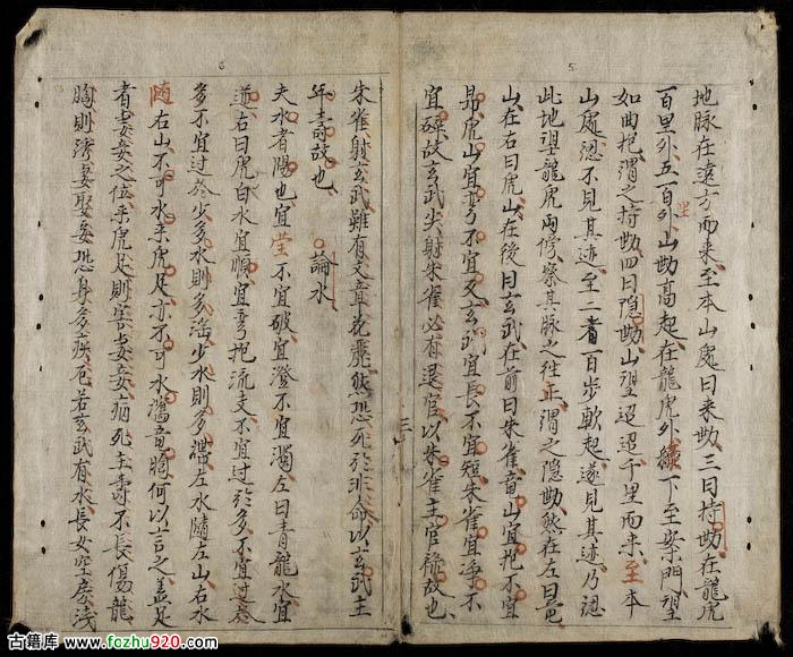 5
地脉在遠方而来至本山處曰来㔟三曰持㔟在龍虎
百里外五百里外山㔟高起在龍虎外下至案門望
如曲抱謂之持㔟四曰隐㔟山望迢迢千里而来至本
山處忽不見其迹至二者百步軟起遂見其迹乃認
此地望龍虎兩傍察其脉之往正謂之隐㔟然在左曰龍
山在右曰虎山在後曰玄武在前曰朱雀龍山宜抱不宜
昂虎山宜弯不宜叉玄武宜長不宜短朱雀宜淨不
宜碎故玄武尖射朱雀必有退官以朱雀主官祿故也
三
6
朱雀射玄武雖有文章花麗然恐死於非命以玄武主
年壽故也 論水
夫水者陽也宜莹不宜破宜澄不宜濁左曰青龍水宜
遶右曰虎白水宜順宜弯抱流支不宜過於多不宜過於
多不宜過於少多水則多活少水則多滯左水隨左山右水
隨右山不可水来虎足亦不可水濡龍胸何以言之盖足
者妻妾之位来虎足則害妻妾病死主壽不長傷龍
胸則淫妻娶妾恐身多疾厄若玄武有水長女空房淺
古籍库 www.fozhu920.com